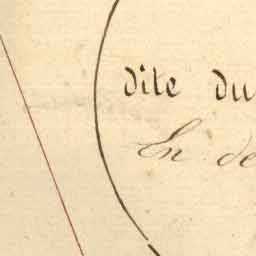 dite du
En de